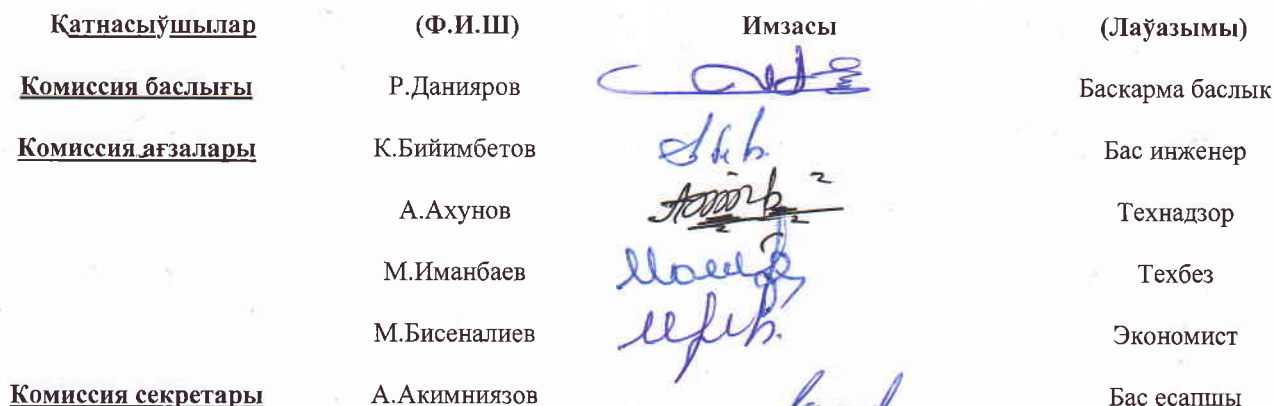 Қатнасыўшылар (Ф.И.Ш) Имзасы (Лаўазымы)
Комиссия баслығы Р.Данияров Баскарма баслык
Комиссия ағзалары К.Бийимбетов Бас инженер
А.Ахунов Технадзор
М.Иманбаев Техбез
М.Бисеналиев Экономист
Комиссия секретары А.Акимниязов Бас есапшы